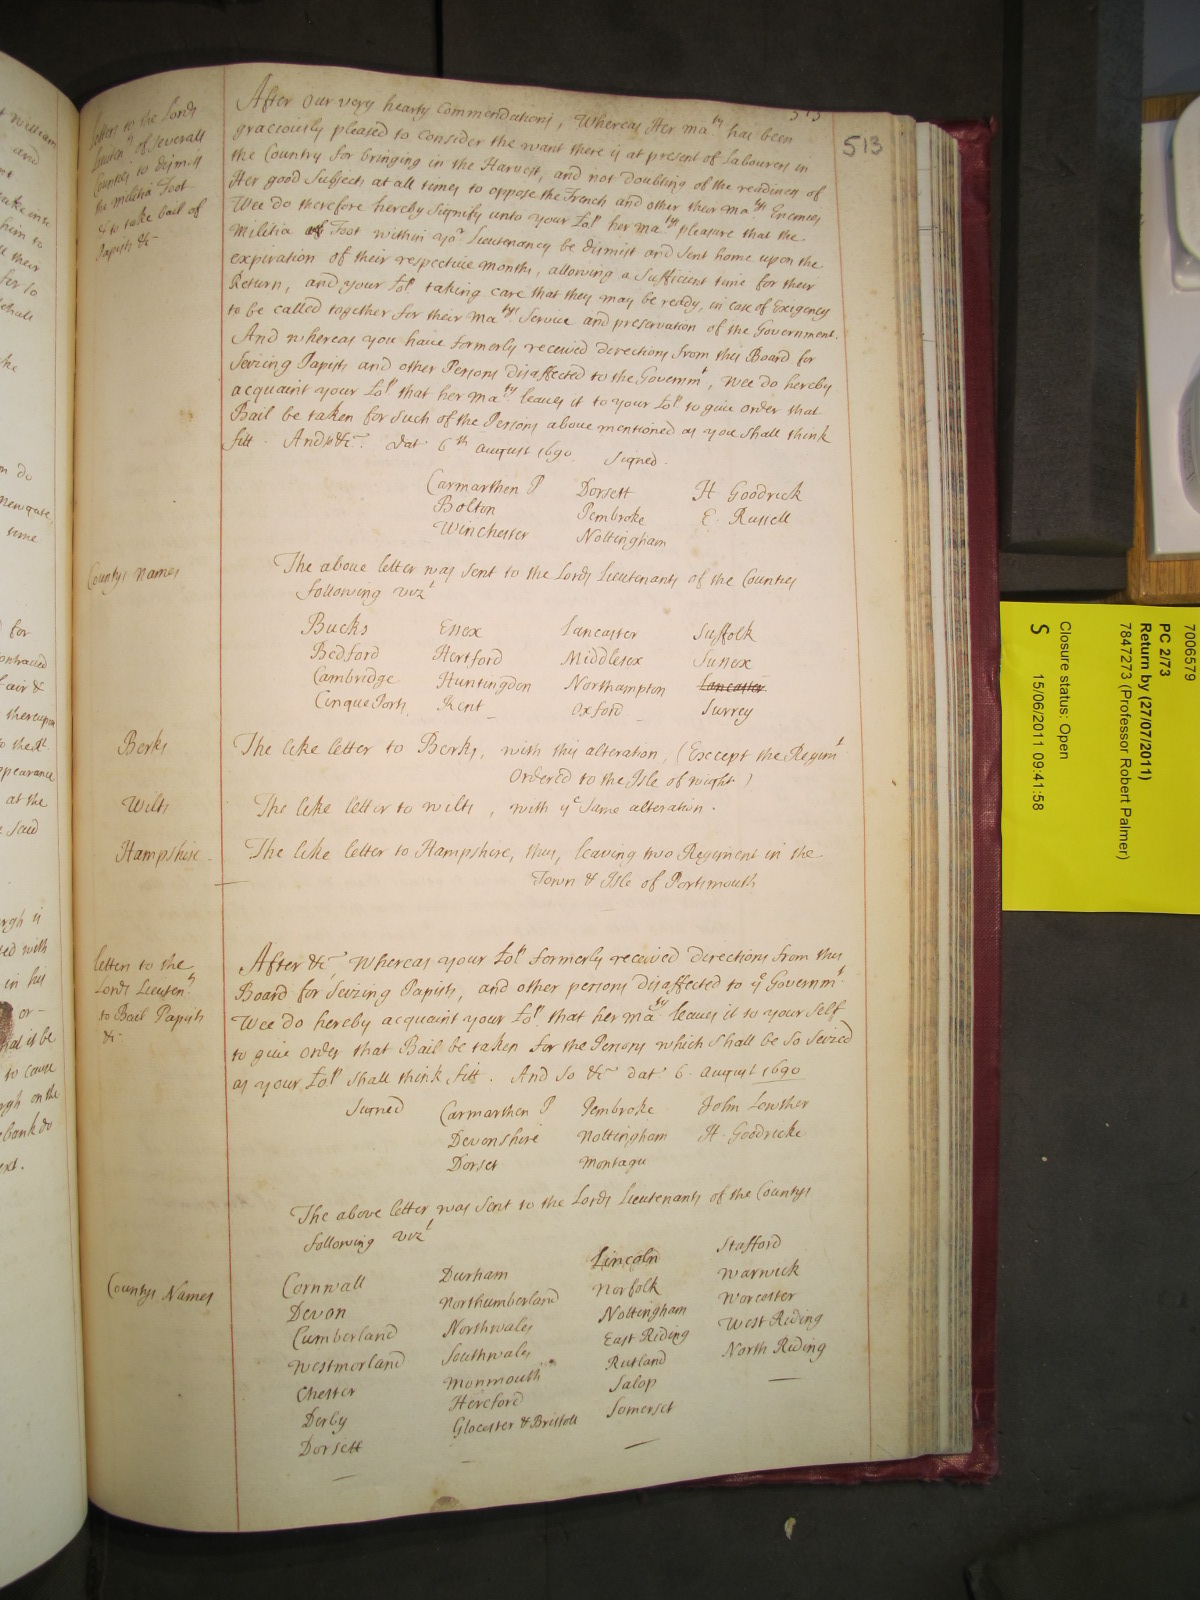 513
513
Letters to the Lords
Lieuten.ts of severall
Countys to dismiss
the militia Foot
& to take bail of
Papists &c
After Our very hearty Commendations, Whereas Her Ma.ty has been
graciously pleased to consider the want there is at present of Labourers in
the Country for bringing in the Harvest, and not doubting of the readiness of
Her good Subjects at all times to oppose the French and other their Ma.tys Enemies
Wee do therefore hereby Signify unto your Lo.p her Ma.tys pleasure that the
Militia of Foot within yo.r Lieutenancy be dismist and sent home upon the
expiration of their respective months, allowing a Sufficient time for their
Return, and your Lo.p taking care that they may be ready, in case of Exigency
to be called together for their Ma.tys Service and preservation of the Government.
And whereas you have formerly received directions from this Board for
Seizing Papists and other Persons Disaffected to the Governm.t, Wee do hereby
acquaint your Lo.p that her Ma.ty leaves it to your Lo.p to give order that
Bail be taken for such of the Persons above mentioned as you shall think
fitt. And so &c. Dat 6th August 1690. Signed.
Carmarthen P Dorsett H Goodrick
Bolton Pembroke E. Russell
Winchester Nottingham
Countys Names
The above letter was sent to the Lords Lieutenants of the Counties
following vizt
Bucks Essex Lancaster Suffolk
Bedford Hertford Middlesex Sussex
Cambridge Huntingdon Northampton Lancaster
Cinque Ports Kent Oxford Surrey
Berks
The like letter to Berks, with this alteration, (Except the Regim.t
Ordered to the Isle of Wight)
Wilts
The like letter to Wilts, with ye Same alteration.
Hampshire
The like letter to Hampshire, thus, leaving two Regiment in the
Town & Isle of Portsmouth
letters to the
Lords Lieuten.ts
to Bail Papists
&c
After &c Whereas your Lo.p formerly received directions from this
Board for Seizing Papists, and other persons disaffected to ye Governm.t
Wee do hereby acquaint your Lo.p that her Ma.ty leaves it to your Self
to give order that Bail be taken for the Persons which shall be so Seized
as your Lo.p shall think fitt. And so &c dat 6. August 1690
Signed Carmarthen P Pembroke John Lowther
Devonshire Nottingham H. Goodricke
Dorset Montagu
The above letter was sent to the Lords Lieutenants of the Countys
following vizt
Countys Names
Cornwall Durham Lincoln Stafford
Devon Northumberland Norfolk Warwick
Cumberland Northwales Nottingham Worcester
Westmorland Southwales East Riding West Riding
Chester Monmouth Rutland North Riding
Derby Hereford Salop
Dorsett Glocester & Bristoll Somerset
7006579
PC 2/73
Return by (27/07/2011)
7847273 (Professor Robert Palmer)
Closure status: Open
S 15/06/2011 09:41:58